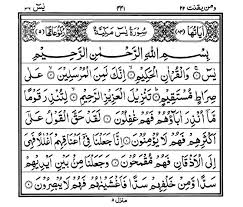 ومن يقنت ٢٢ يٰسٓ
اٰيَاتُهَا (٨٣) سُوْرَةُ يٰسٓ مَكِّيَّةٌ رُكُوْعَاتُهَا (٥)
بِسْمِ اللّٰهِ الرَّحْمٰنِ الرَّحِيْمِ
يٰسٓ ۝ وَالْقُرْاٰنِ الْحَكِيْمِ ۝ اِنَّكَ لَمِنَ الْمُرْسَلِيْنَ ۝ عَلٰى
صِرَاطٍ مُّسْتَقِيْمٍ ۝ تَنْزِيْلَ الْعَزِيْزِ الرَّحِيْمِ ۝ لِتُنْذِرَ قَوْمًا
مَّآ اُنْذِرَ اٰبَآؤُهُمْ فَهُمْ غٰفِلُوْنَ ۝ لَقَدْ حَقَّ الْقَوْلُ عَلٰٓى
اَكْثَرِهِمْ فَهُمْ لَا يُؤْمِنُوْنَ ۝ اِنَّا جَعَلْنَا فِيْٓ اَعْنَاقِهِمْ اَغْلٰلًا فَهِيَ
اِلَى الْاَذْقَانِ فَهُمْ مُّقْمَحُوْنَ ۝ وَجَعَلْنَا مِنْۢ بَيْنِ اَيْدِيْهِمْ
سَدًّا وَّمِنْ خَلْفِهِمْ سَدًّا فَاَغْشَيْنٰهُمْ فَهُمْ لَا يُبْصِرُوْنَ ۝
منزل ٥